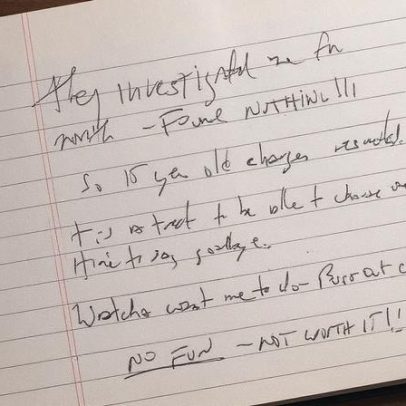 They investigated me for
month - Found NOTHING!!!
So 15 year old charges resurrected.
It is a treat to be able to choose
time to say goodbye.
Watcha want me to do - Burst out c
NO FUN - NOT WORTH IT!!